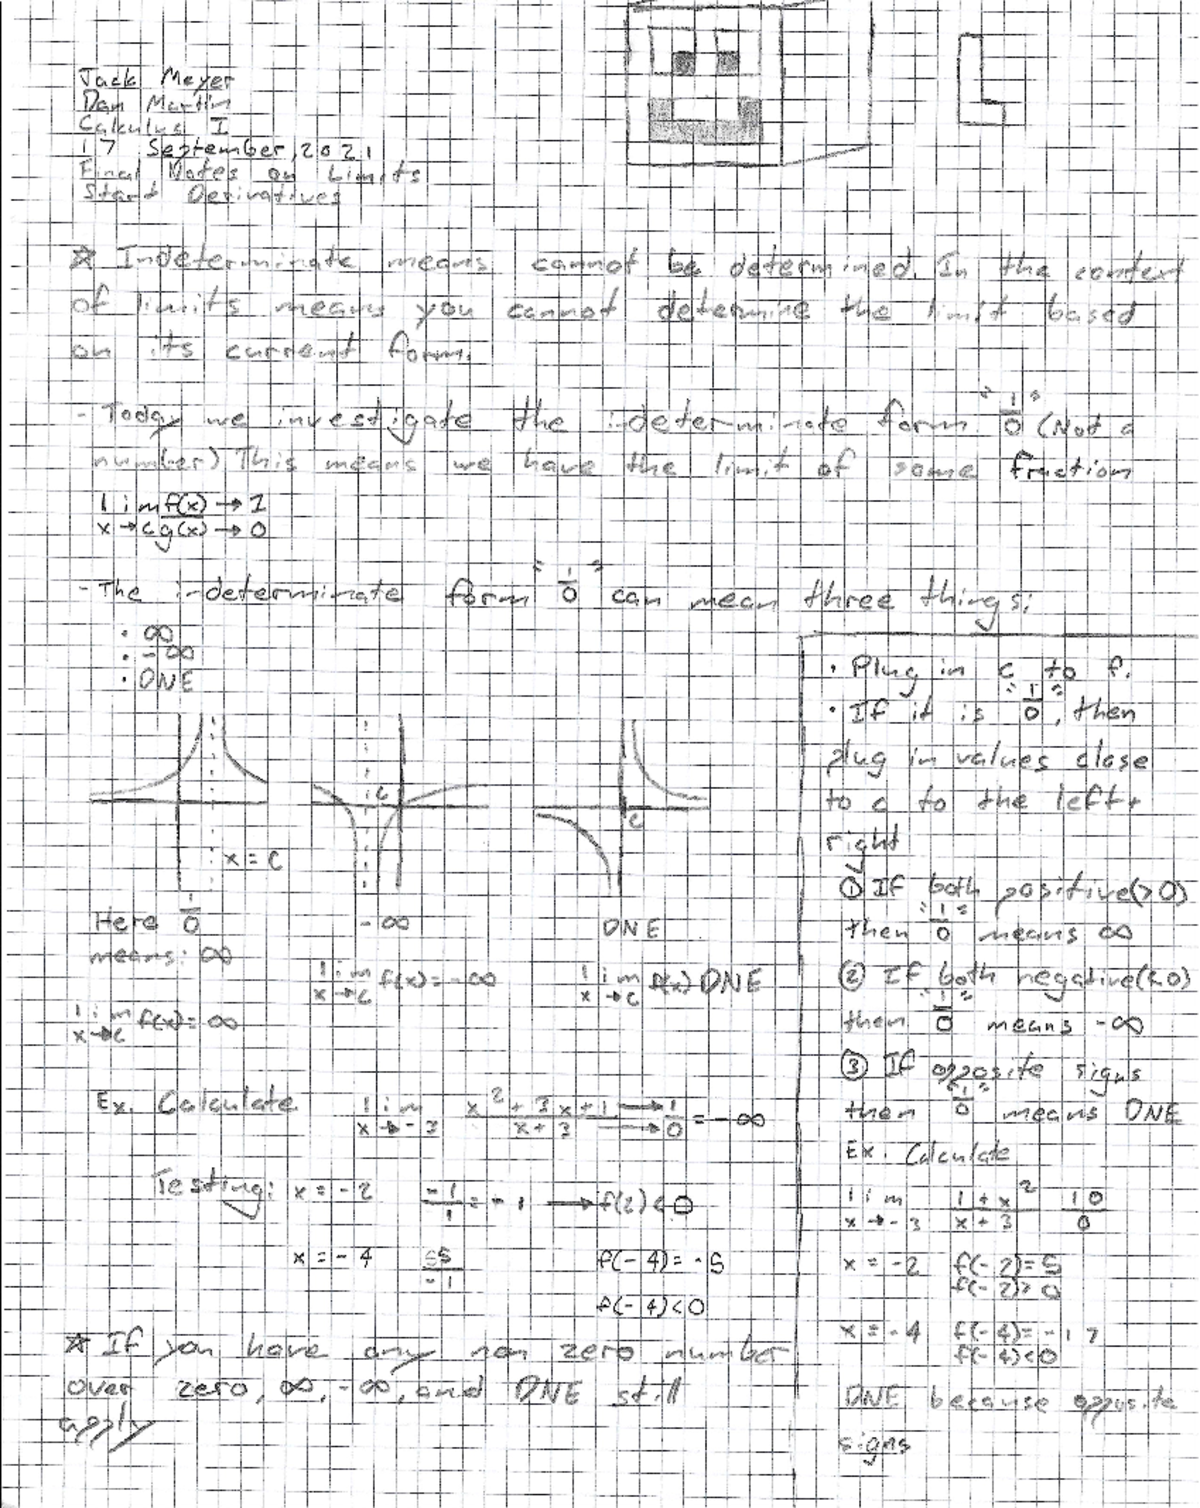 Jack Meyer
Dan Martin
Calculus I
17 September, 2021
Final Notes on Limits
Start Derivatives
L
☆ Indeterminate means cannot be determined. In the context
of limits means you cannot determine the limit based
on its current form.
- Today we investigate the indeterminate form "1/0" (Not a
number) This means we have the limit of some fraction
lim f(x) → 1
x→c g(x) → 0
- The indeterminate form "1/0" can mean three things:
· ∞
· -∞
· DNE
c
c
x = c
Here 1/0
means: ∞
lim x→c f(x) = ∞
-∞
lim x→c f(x) = -∞
DNE
lim x→c f(x) DNE
Ex. Calculate lim x→-3 (x² + 3x + 1)/(x + 3) →→ 1/0 = -∞
Testing: x = -2 -1/1 = -1 → f(2) < 0
x = -4 5/-1 f(-4) = -5
f(-4) < 0
☆ If you have any non zero number
over zero, ∞, -∞, and DNE still
apply
· Plug in c to f.
· If it is "1/0", then
plug in values close
to c to the left +
right
① If both positive (>0)
then "1/0" means ∞
② If both negative (<0)
then "1/0" means -∞
③ If opposite signs
then "1/0" means DNE
Ex. Calculate
lim x→-3 (1 + x²)/(x + 3) 10/0
x = -2 f(-2) = 5
f(-2) > 0
x = -4 f(-4) = -17
f(-4) < 0
DNE because opposite
signs